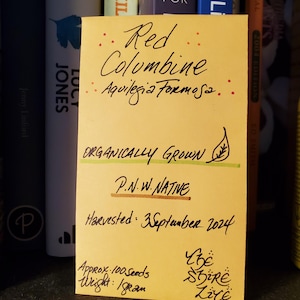 Red
Columbine
Aquilegia Formosa
ORGANICALLY GROWN
P.N.W. NATIVE
Harvested: 3 September 2024
Approx. 100 Seeds
Weight: 1gram
LUCY
JONES